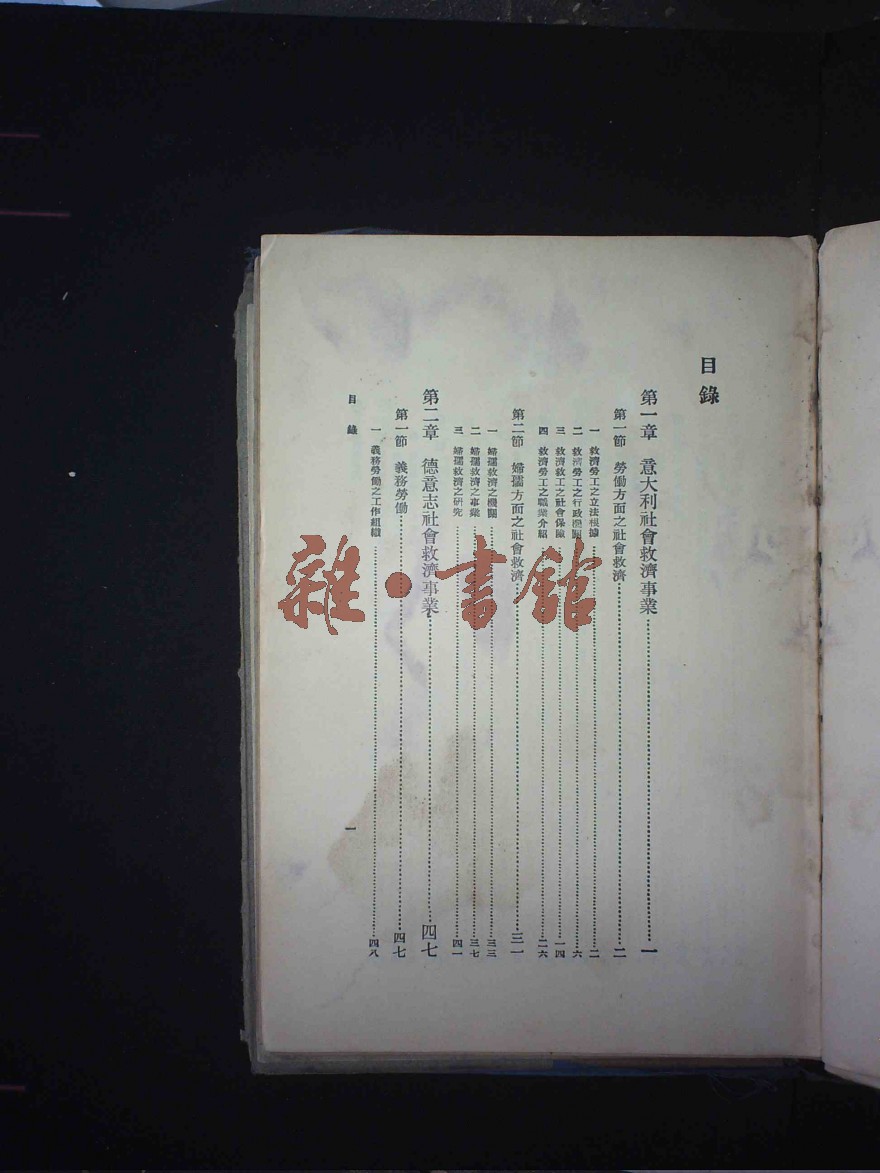 目錄
第一章　意大利社會救濟事業……一
第一節　勞働方面之社會救濟……二
一　救濟勞工之立法根據……二
二　救濟勞工之行政機關……六
三　救濟救工之社會保險……一四
四　救濟勞工之職業介紹……二六
第二節　婦孺方面之社會救濟……三一
一　婦孺救濟之機關……三三
二　婦孺救濟之事業……三七
三　婦孺救濟之研究……四一
第二章　德意志社會救濟事業……四七
第一節　義務勞働……四七
一　義務勞働之工作組織……四八
目錄
一
雜·書館